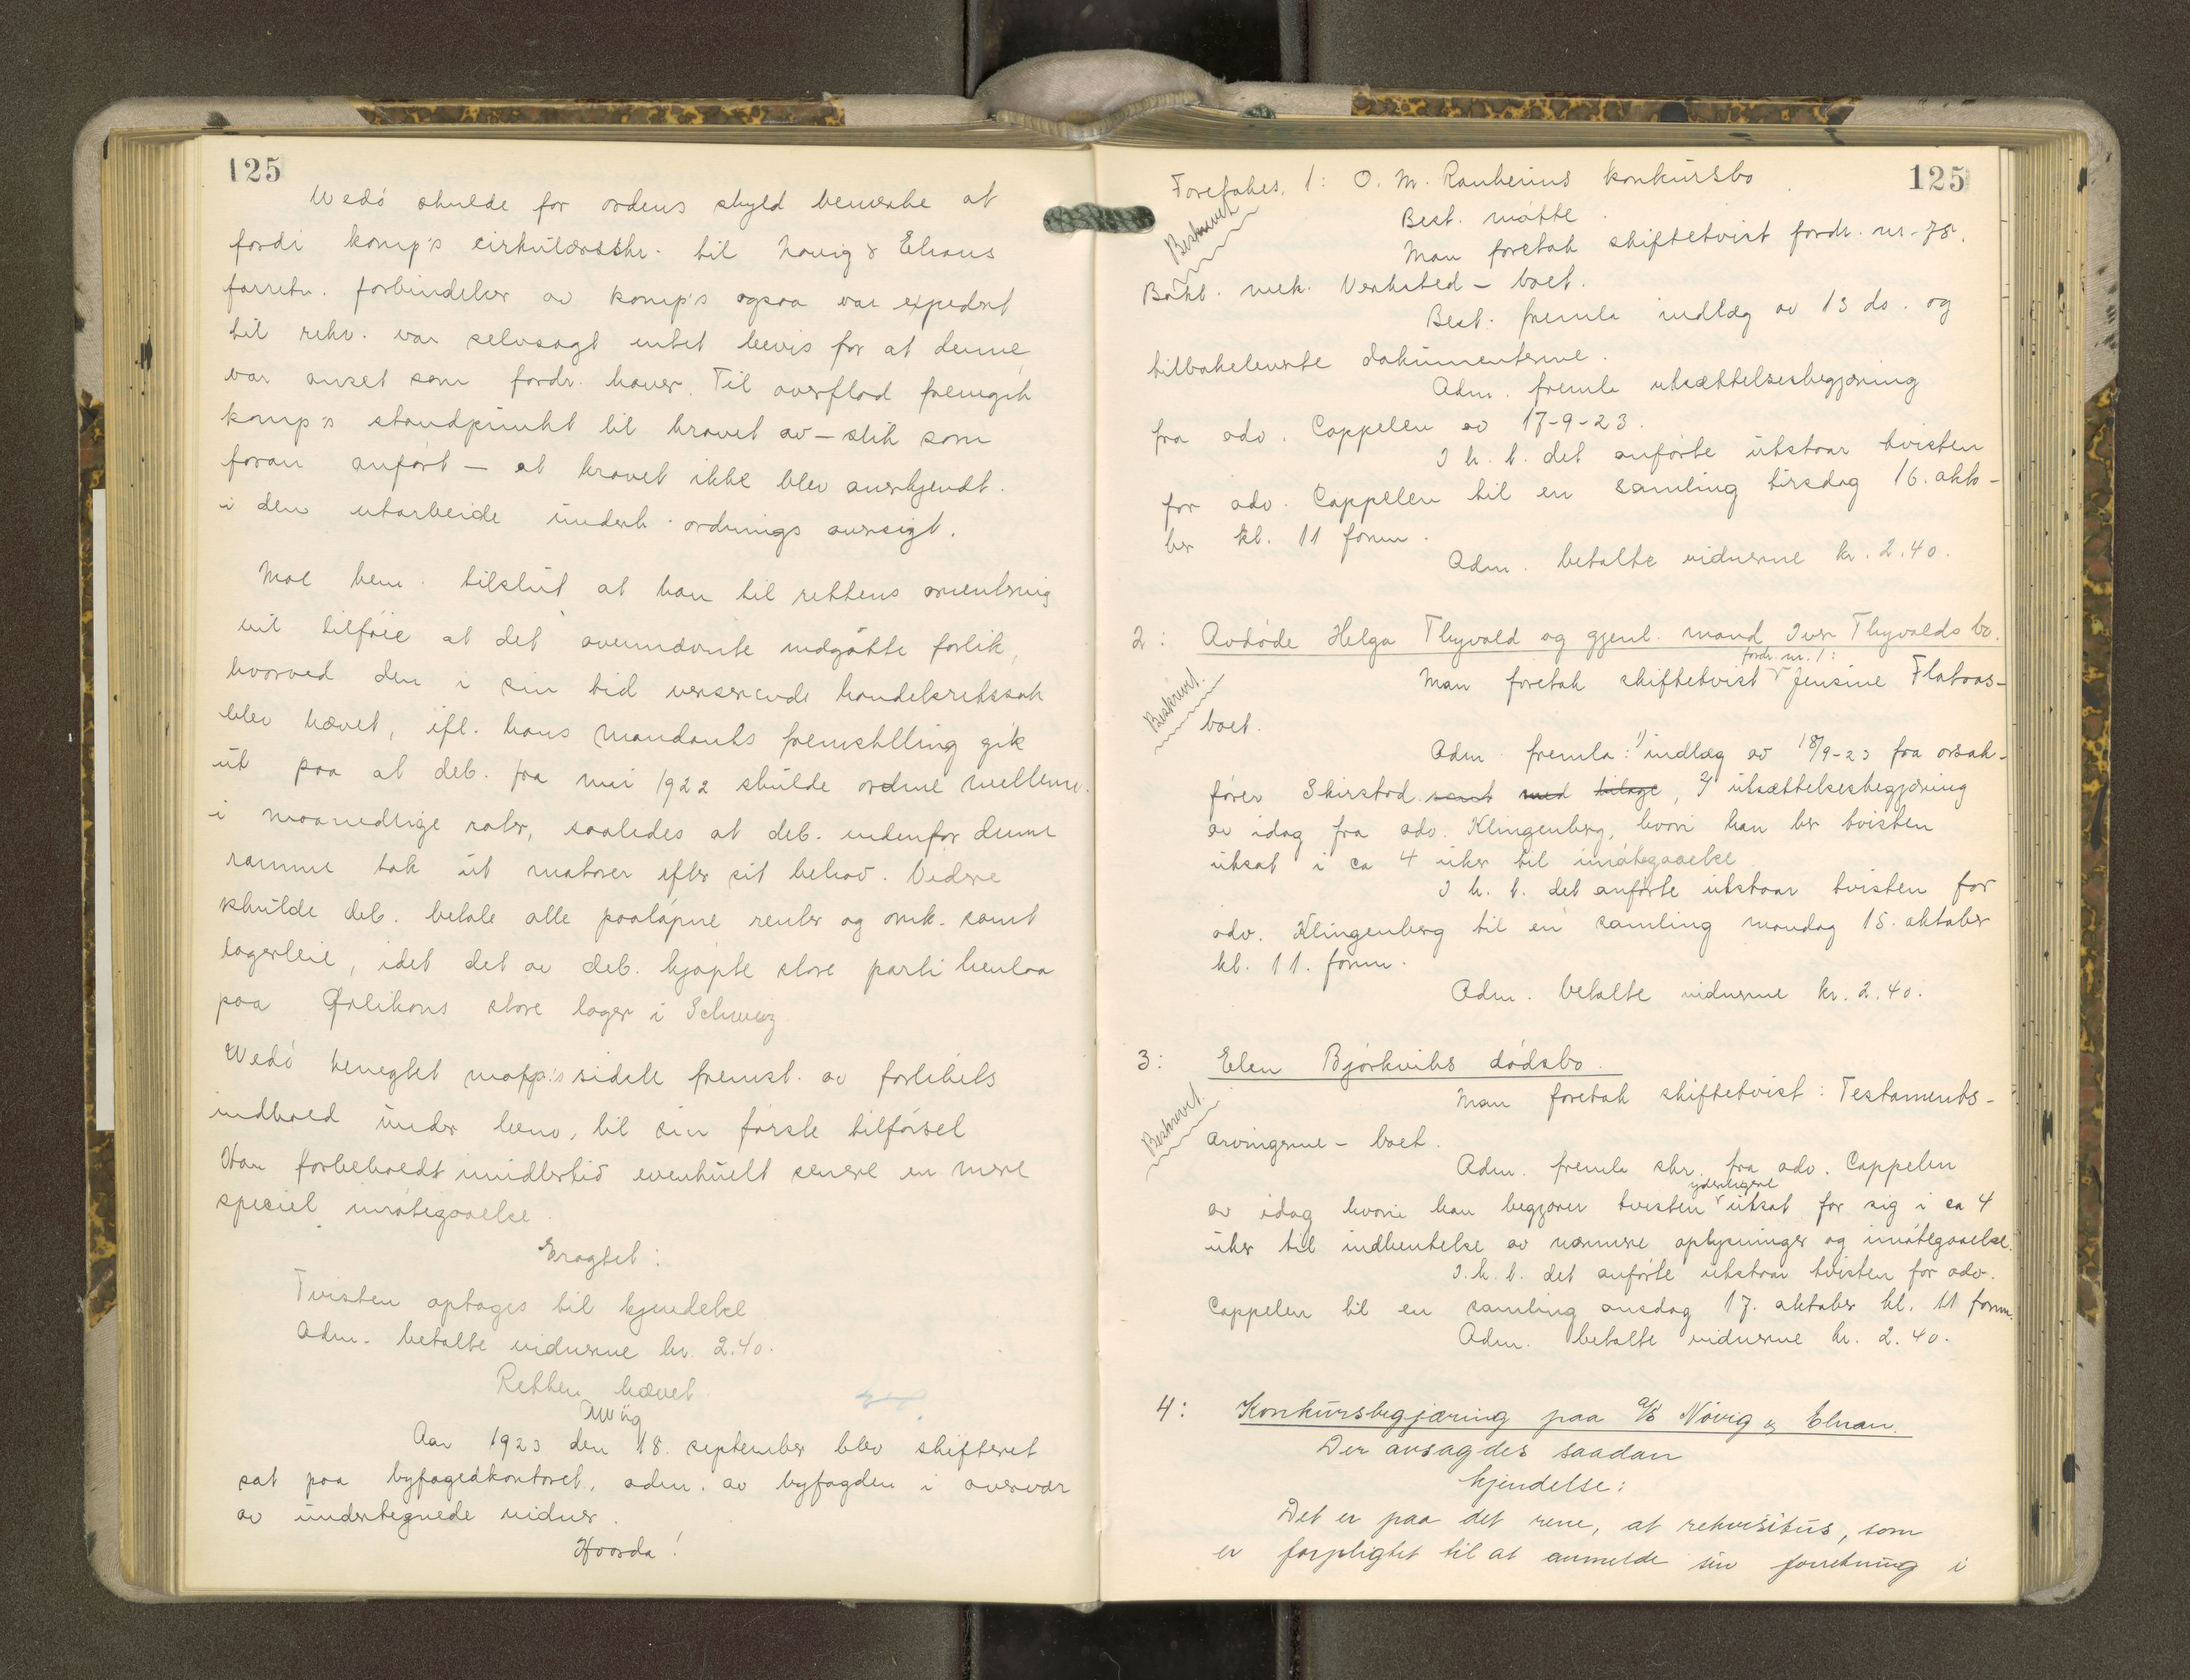 125
Wedö skulde for ordens skyld bemerke at
fordi komp's cirkulærskr. til Nøvig & Elnans
forretn. forbindelser av komp's ogsaa var expedert
til rekv. var selvsagt intet bevis for at denne
var anset som fordr. haver. Til overflod fremgik
komp's standpunkt til kravet av — slik som
foran anført — at kravet ikke blev anerkjendt.
i den utarbeide underh. ordnings oversigt.
Moe bem. tilslut at han til rettens orientering
vil tilføie at det ovennævnte indgåtte forlik,
hvorved den i sin tid verserende handelsretssak
blev hævet, ifl. hans mandants fremstilling gik
ut paa at deb. fra mai 1922 skulde ordne mellemv.
i maanedlige rater, saaledes at deb. indenfor denne
ramme tok ut motorer efter sit behov. Videre
skulde deb. betale alle paaløpne renter og omk. samt
lagerleie, idet det av deb. kjøpte store parti henlaa
paa Ørlikons store lager i Schweiz
Wedö benegtet motp.'s sidste fremst. av forlikets
indhold under henv. til sin første tilførsel
Han forbeholdt imidlertid eventuelt senere en mere
speciel imøtegaaelse.
Eragtet:
Tvisten optages til kjendelse
Adm. betalte vidnerne kr. 2.40.
Retten hævet.
Aar 1923 den 18. september blev skifteret
sat paa byfogedkontoret, adm. av byfogden i overvær
av undertegnede vidner.
Hvorda!
125
Foretokes. 1: O. M. Rauheims konkursbo
Beskrevet
Best. møtte.
Man foretok skiftetvist fordr. nr. 78.
Bakl. mek. Verksted — boet.
Best. fremla indlæg av 13 ds. og
tilbakeleverte dokumenterne.
Adm. fremla utsættelsesbegjæring
fra adv. Cappelen av 17-9-23.
I h. t. det anførte utstaar tvisten
for adv. Cappelen til en samling tirsdag 16. okto-
ber kl. 11 form.
Adm. betalte vidnerne kr. 2.40.
2: Avdøde Helga Thyvold og gjenl. mand Iver Thyvolds bo.
fordr. nr. 1:
Beskrevet.
Man foretok skiftetvist Jensine Flataas-
boet.
Adm. fremla: 1) indlæg av 18/9-23 fra orsak-
fører Skirstad samt med bilage, 2) utsættelsesbegjæring
av idag fra adv. Klingenberg, hvori han ber tvisten
utsat i ca 4 uker til imøtegaaelse
I h. t. det anførte utstaar tvisten for
adv. Klingenberg til en samling mandag 15. oktober
kl. 11. form.
Adm. betalte vidnerne kr. 2.40.
3: Elen Bjørkviks dødsbo.
Beskrevet.
Man foretok skiftetvist: Testaments-
arvingerne — boet.
Adm. fremla skr. fra adv. Cappelen
yderligere
av idag hvori han begjærer tvisten utsat for sig i ca 4
uker til indhentelse av nærmere oplysninger og imøtegaaelse.
I. h. t. det anførte utstaar tvisten for adv.
Cappelen til en samling onsdag 17. oktober kl. 11 form.
Adm. betalte vidnerne kr. 2.40.
4: Konkursbegjæring paa A/S Nøvig & Elnan.
Der avsagdes saadan
kjendelse:
Det er paa det rene, at rekvisitus, som
er forpligtet til at anmelde sin forretning i